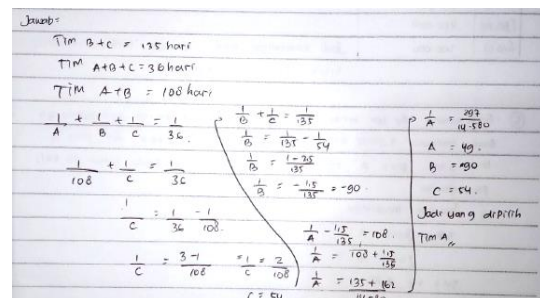 Jawab =
Tim B+C = 135 hari
Tim A+B+C = 36 hari
Tim A+B = 108 hari
1/A + 1/B + 1/C = 1/36
1/108 + 1/C = 1/36
1/C = 1/36 - 1/108
1/C = 3-1/108 = 1/C = 2/108
C = 54
1/B + 1/C = 1/135
1/B = 1/135 - 1/54
1/B = 1-2,5/135
1/B = - 1,5/135 = -90
1/A - 1,5/135 = 108
1/A = 108 + 1,5/135
1/A = 135 + 162
1/A = 297/14.580
A = 49.
B = -90
C = 54.
Jadi yang dipilih
Tim A